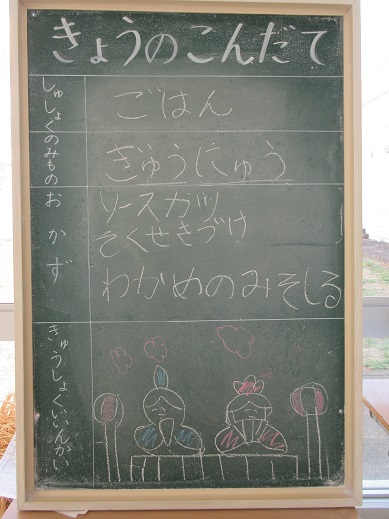 きょうのこんだて
しゅしょく
ごはん
のみもの
ぎゅうにゅう
おかず
ソースカツ
そくせきづけ
わかめのみそしる
きゅうしょくいいんかい